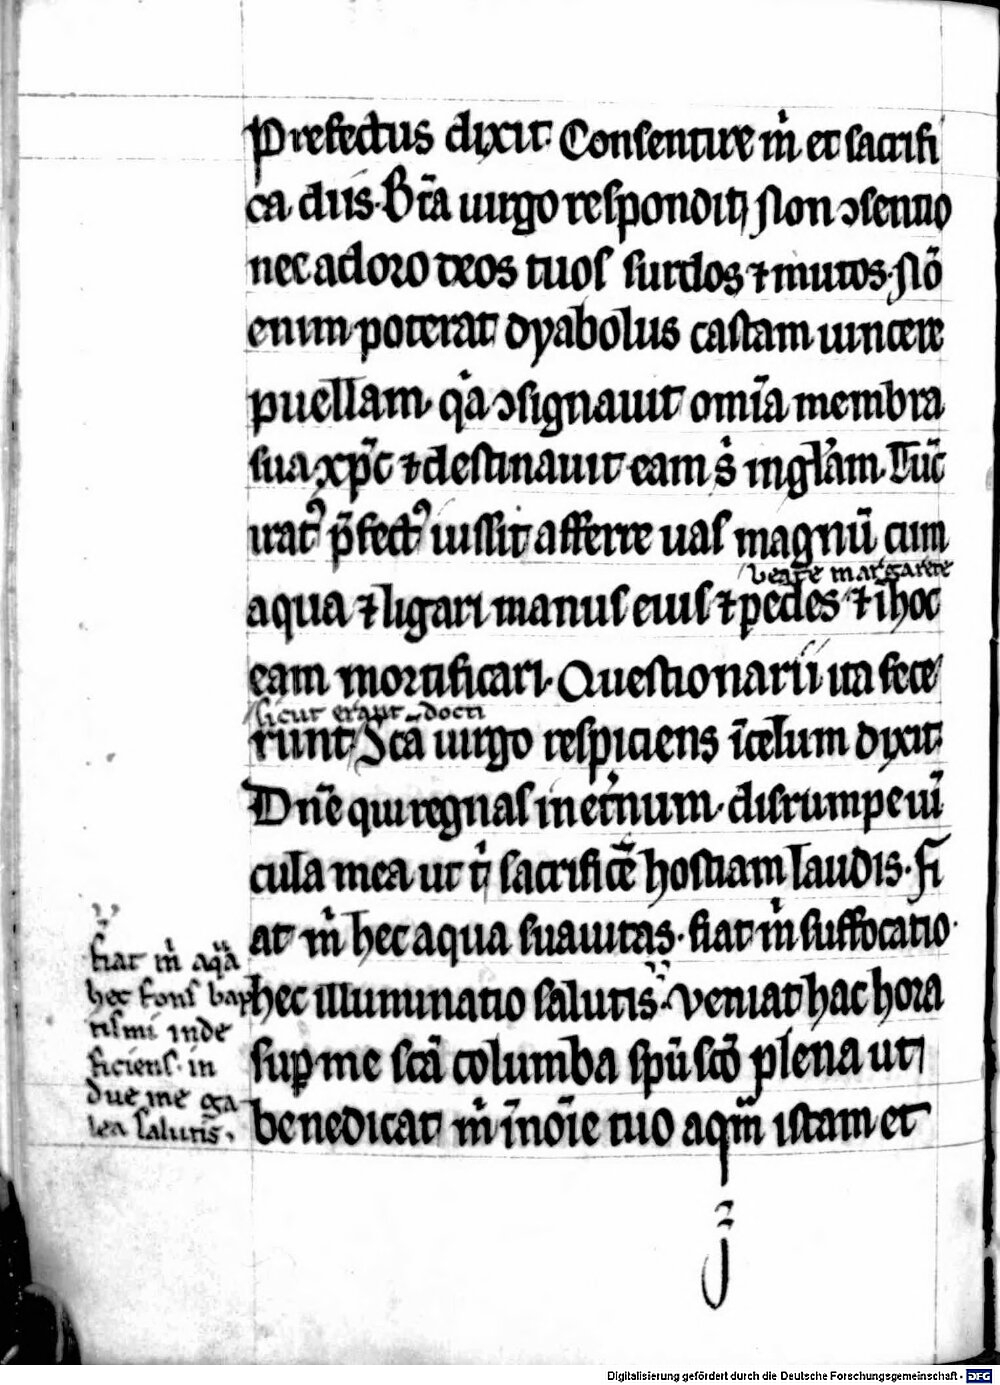 Prefectus dixit Consentire m̍ et sacrifi
ca diis. Bt̄a uirgo respondit Non ↄsentio
nec adoro deos tuos surdos ⁊ mutos. Nō
enim poterat dyabolus castam uincere
puellam. q̍a ↄsignauit om̄ia membra
sua xp̄c ⁊ destinauit eam s̄ in gl̄am. Tūc
irat⁹ p̄fect⁹ iussit afferre uas magnū cum
beate margarete
aqua ⁊ ligari manus eius ⁊ pedes ⁊ ī hoc
eam mortificari. Questionarii ita fece
sicut erant docti
runt. Sc̄a uirgo respiciens ī celum dixit
Dn̄e qui regnas in et̍num. disrumpe uī
cula mea ut t̍ sacrificē hostiam laudis. fi
at m̍ hec aqua suauitas. fiat m̍ suffocatio
hec illuminatio salutis. Veniat hac hora
sup̱ me sc̄a columba sp̄u sc̄o plena ut
benedicat m̍ ī noīe tuo aqm̄ istam et
fiat m̍ aq̈a
hec fons bap
tismi inde
ficiens. in
due me ga
lea salutis.
Digitalisierung gefördert durch die Deutsche Forschungsgemeinschaft - DFG